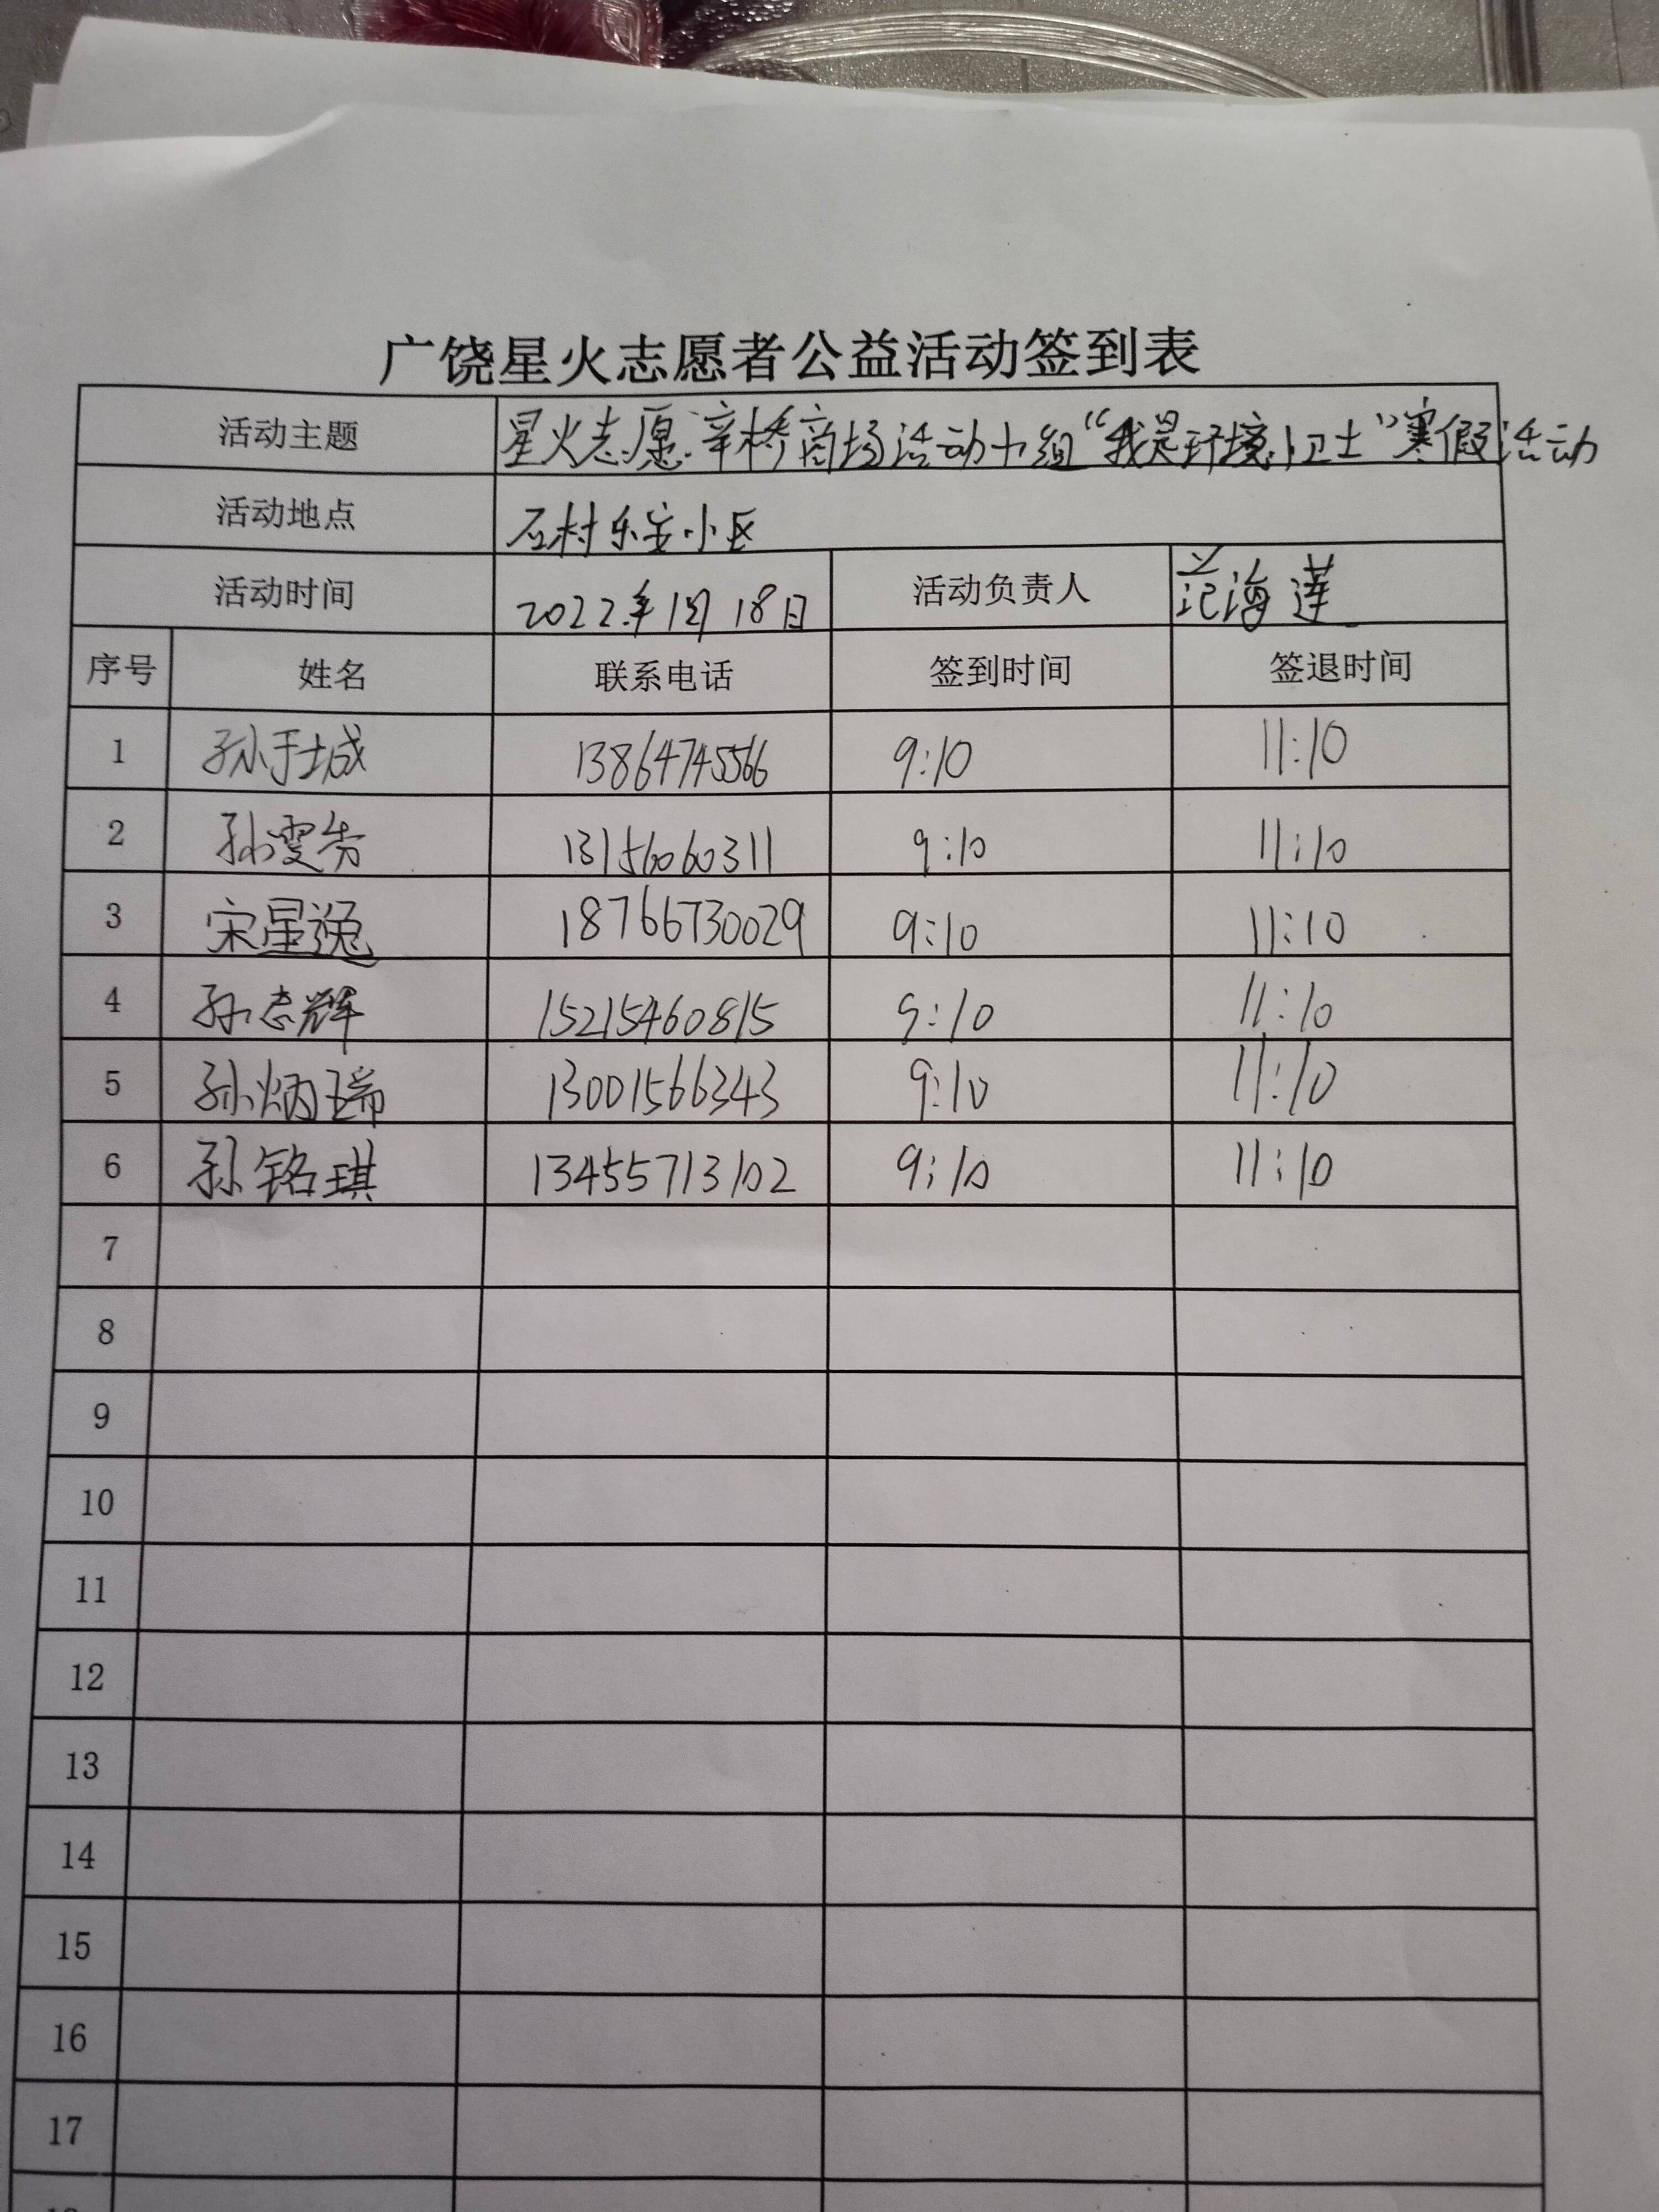 广饶星火志愿者公益活动签到表
活动主题 星火志愿.辛桥商场活动小组“我是环境小卫士”寒假活动
活动地点 石村乐安小区
活动时间 2022年1月18日 活动负责人 范海莲
序号 姓名 联系电话 签到时间 签退时间
1 孙于城 13864745566 9:10 11:10
2 孙雯 13156060311 9:10 11:10
3 宋星逸 18766730029 9:10 11:10
4 孙志辉 15215460815 9:10 11:10
5 孙炳瑞 13001566343 9:10 11:10
6 孙铭琪 13455713102 9:10 11:10
7
8
9
10
11
12
13
14
15
16
17